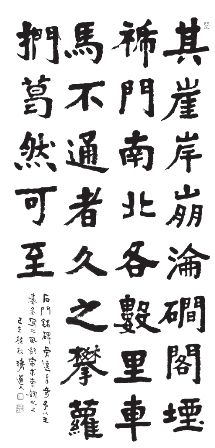 其崖岸崩淪磵閣堙
褫門南北各數里車
馬不通者久之攀蘿
捫葛然可至
石門銘碑